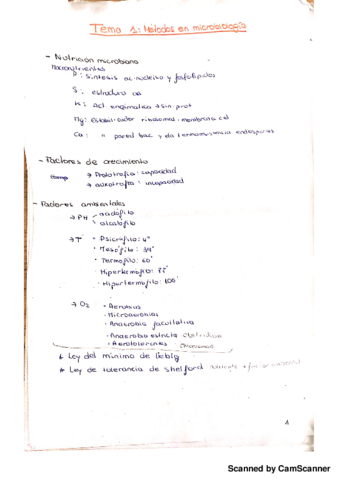 Tema 1: Metodos en microbiología
- Nutrición microbiana
Macronutrientes
P: Sintesis ac. nucleico y fosfolipidos
S: estructura aa
K: act. enzimatica → sin prot
Mg: Estabilizador ribosomas, membrana cel
Ca: " pared bac y da termoresistencia endosporas
- Factores de crecimiento
→ Prototrofia: capacidad
→ auxotrofia: incapacidad
- Factores ambientales
→ PH
acidófilo
alcalófilo
→ Tª
• Psicrofilo: 4º
• Mesófilo: 39º
• Termofilo: 60º
• Hipertermofilo:
• Hipertermofilo: 100º
→ O2
• Aerobios
• Microaerobios
• Anaerobio facultativo
• Anaerobio estricto
• Aerotolerantes
* Ley del minimo de Liebig
* Ley de tolerancia de Shelford
1
Scanned by CamScanner